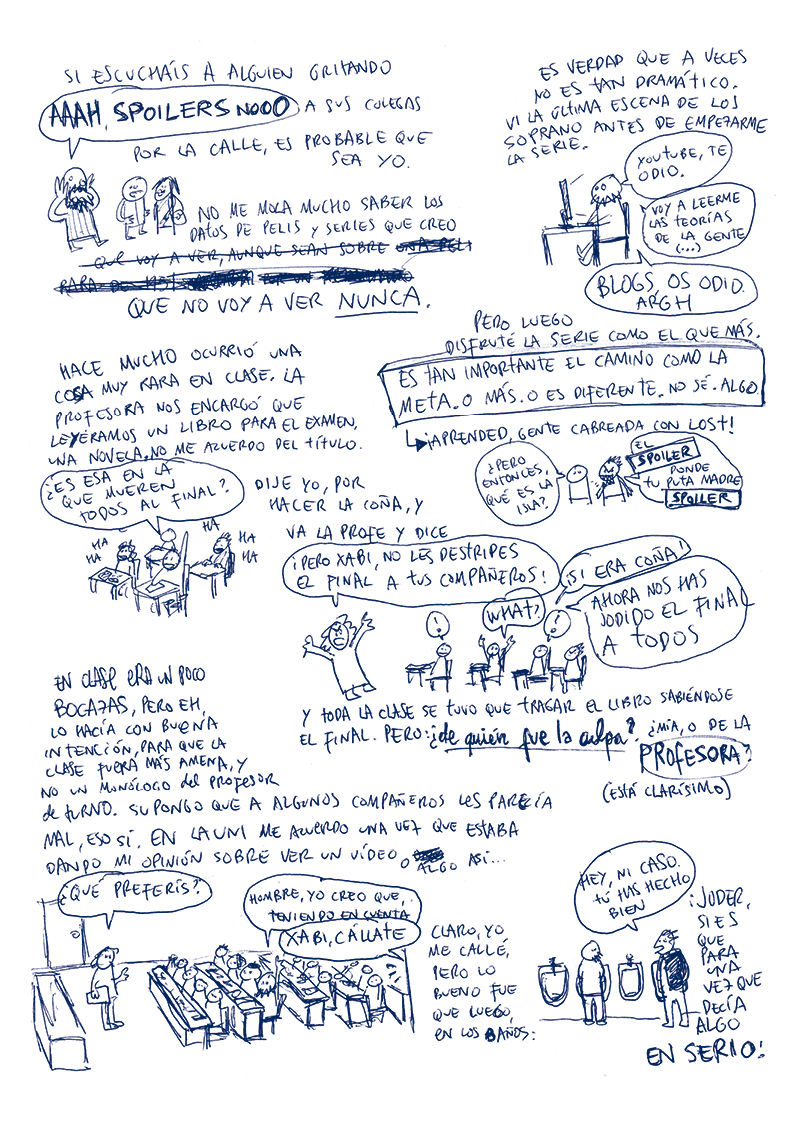 SI ESCUCHÁIS A ALGUIEN GRITANDO
AAAH, SPOILERS NOOO A SUS COLEGAS
POR LA CALLE, ES PROBABLE QUE
SEA YO.
NO ME MOLA MUCHO SABER LOS
DATOS DE PELIS Y SERIES QUE CREO
QUE VOY A VER, AUNQUE SEAN SOBRE UNA PELI
RARA DE
QUE NO VOY A VER NUNCA.
ES VERDAD QUE A VECES
NO ES TAN DRAMÁTICO.
VI LA ÚLTIMA ESCENA DE LOS
SOPRANO ANTES DE EMPEZARME
LA SERIE.
YOUTUBE, TE
ODIO.
VOY A LEERME
LAS TEORÍAS
DE LA GENTE
(...)
BLOGS, OS ODIO.
ARGH
PERO LUEGO
DISFRUTÉ LA SERIE COMO EL QUE MÁS.
ES TAN IMPORTANTE EL CAMINO COMO LA
META. O MÁS. O ES DIFERENTE. NO SÉ. ALGO.
¡APRENDED, GENTE CABREADA CON LOST!
¿PERO
ENTONCES,
QUÉ ES LA
ISLA?
EL
SPOILER
DONDE
TU PUTA MADRE
SPOILER
HACE MUCHO OCURRIÓ UNA
COSA MUY RARA EN CLASE. LA
PROFESORA NOS ENCARGÓ QUE
LEYÉRAMOS UN LIBRO PARA EL EXAMEN,
UNA NOVELA. NO ME ACUERDO DEL TÍTULO.
¿ES ESA EN LA
QUE MUEREN
TODOS AL FINAL?
HA
HA
HA
HA
HA
DIJE YO, POR
HACER LA COÑA, Y
VA LA PROFE Y DICE
¡PERO XABI, NO LES DESTRIPES
EL FINAL A TUS COMPAÑEROS!
!
WHAT?
!
¡SI ERA COÑA!
AHORA NOS HAS
JODIDO EL FINAL
A TODOS
Y TODA LA CLASE SE TUVO QUE TRAGAR EL LIBRO SABIÉNDOSE
EL FINAL. PERO: ¿de quién fue la culpa? ¿MÍA, O DE LA
PROFESORA?
(ESTÁ CLARÍSIMO)
EN CLASE ERA UN POCO
BOCAZAS, PERO EH,
LO HACÍA CON BUENA
INTENCIÓN, PARA QUE LA
CLASE FUERA MÁS AMENA, Y
NO UN MONÓLOGO del PROFESOR
de TURNO. SUPONGO QUE A ALGUNOS COMPAÑEROS LES PARECÍA
MAL, ESO SÍ. EN LA UNI ME ACUERDO UNA VEZ QUE ESTABA
DANDO MI OPINIÓN SOBRE VER UN VÍDEO O ALGO ASÍ...
¿QUÉ PREFERÍS?
HOMBRE, YO CREO QUE,
TENIENDO EN CUENTA
XABI, CÁLLATE
CLARO, YO
ME CALLÉ,
PERO LO
BUENO FUE
QUE LUEGO,
EN LOS BAÑOS:
HEY, NI CASO.
TÚ HAS HECHO
BIEN
¡JODER,
SI ES
QUE
PARA
UNA
VEZ QUE
DECÍA
ALGO
EN SERIO!